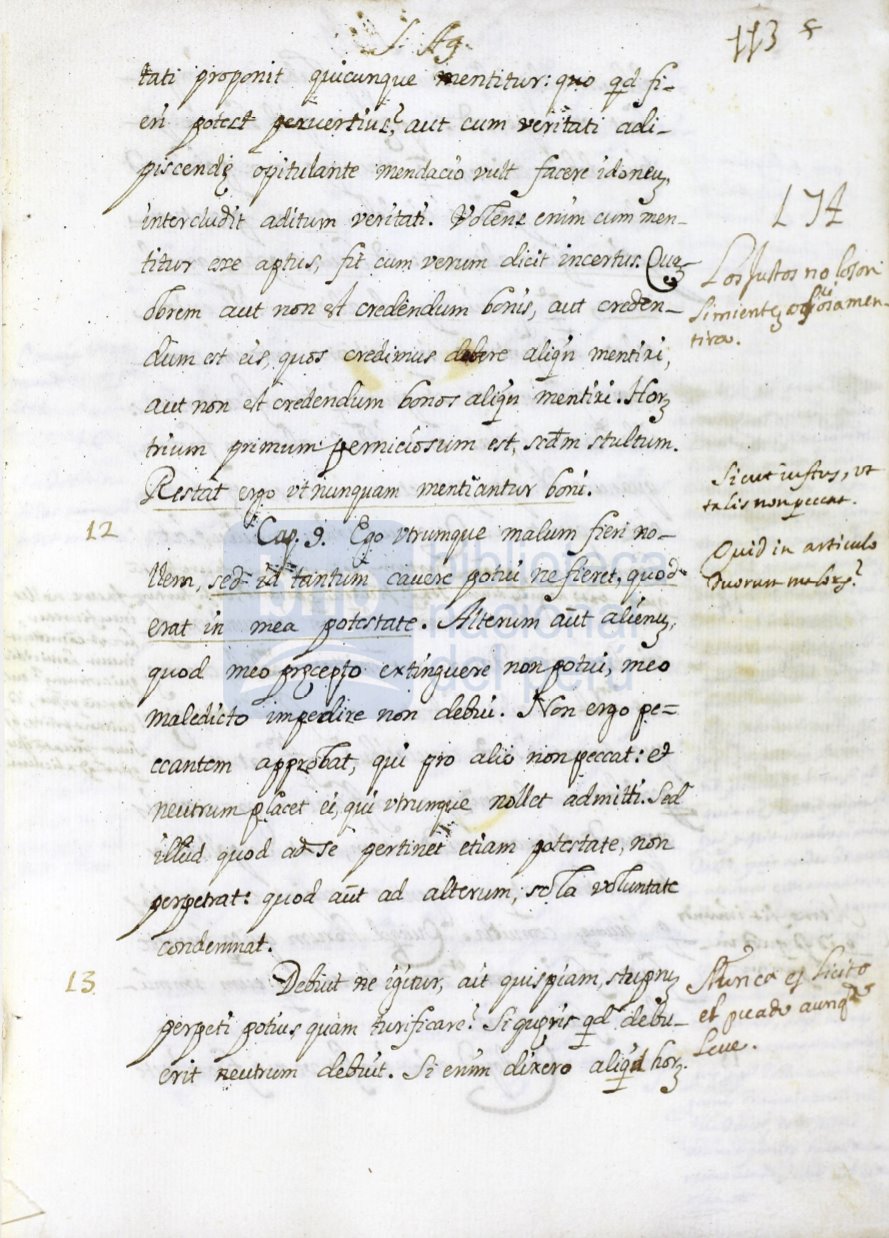 S. Ag.
113
tati proponit quicunque mentitur: quo qd fi-
eri potest perversius? aut cum veritati adi-
piscendę opitulante mendacio vult facere idoneuz,
intercludit aditum veritati. Volens enim cum men-
titur eẽ aptus, fit cum verum dicit incertus. Quaz
obrem aut non est credendum bonis, aut creden-
dum est eis, quos credimus debere aliqn̄ mentiri,
aut non est credendum bonos aliqn̄ mentiri. Horz
trium primum perniciosum est, secd̄m stultum.
Restat ergo vt nunquam mentiantur boni.
174
Los Justos no lo son
si mienten
tira.
Sicut iustus, vt
talis non peccat.
12
Cap. 9. Ego vtrumque malum fieri no-
llem, sed id tantum cavere potui ne fieret, quod
erat in mea potestate. Alterum aūt alienuz,
quod meo pręcepto extinguere non potui, meo
maledicto impedire non debui. Non ergo pe-
ccantem approbat, qui pro alio non peccat: et
neutrum placet ei, qui vtrunque nollet admitti. Sed
illud quod ad se pertinet etiam potestate, non
perpetrat: quod aūt ad alterum, sola voluntate
condemnat.
Quid in articulo
duorum malorz?
13
Debuit ne igitur, ait quispiam, stupruz
perpeti potius quam turificare? Si quęris qd debu-
erit neutrum debuit. Si enim dixero aliqd horz
Nunca es licito
el pecado aunqe
leve.
biblioteca
nacional
del perú
bnp